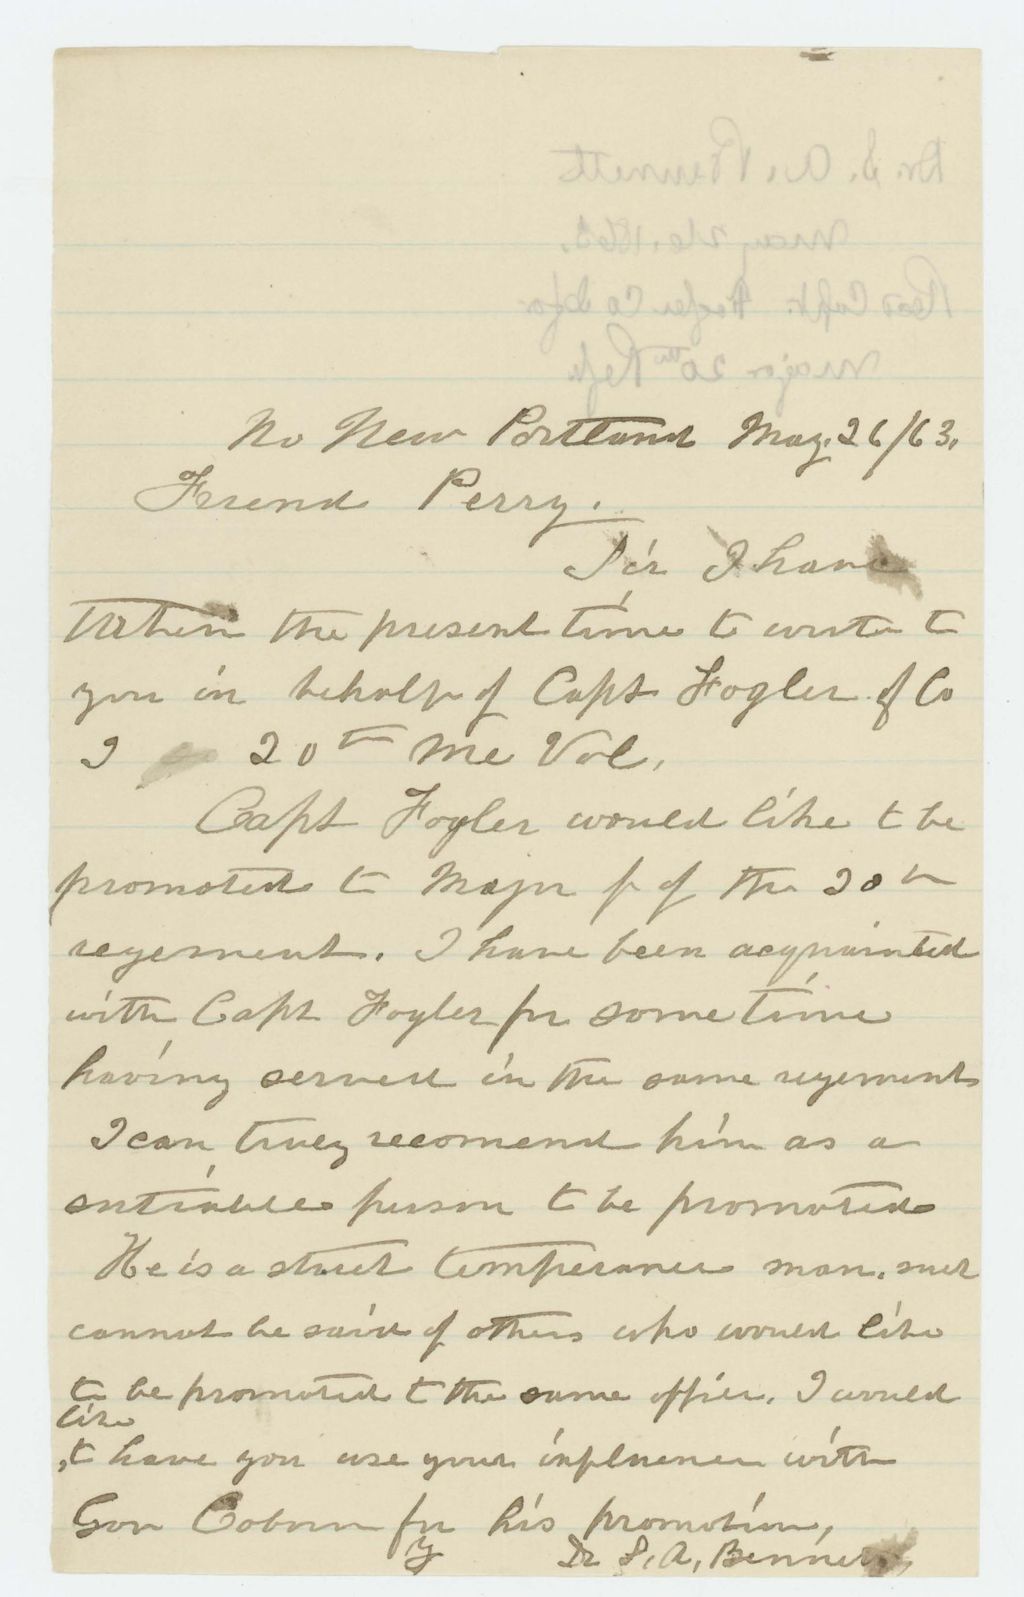 No New Portland May. 26/63.
Friend Perry.
Sir I have
taken the present time to write to
you in behalf of Capt Fogler of Co
I 20th Me Vol.
Capt Fogler would like to be
promoted to Major of the 20th
regement. I have been acquainted
with Capt Fogler for some time
having served in the same regement
I can truey recomend him as a
sutiable person to be promoted
He is a strict temperance man. such
cannot be said of others who would like
to be promoted to the same office. I would
like
to have you use your influence with
Gov Coburn for his promotion,
Dr S. A. Bennett